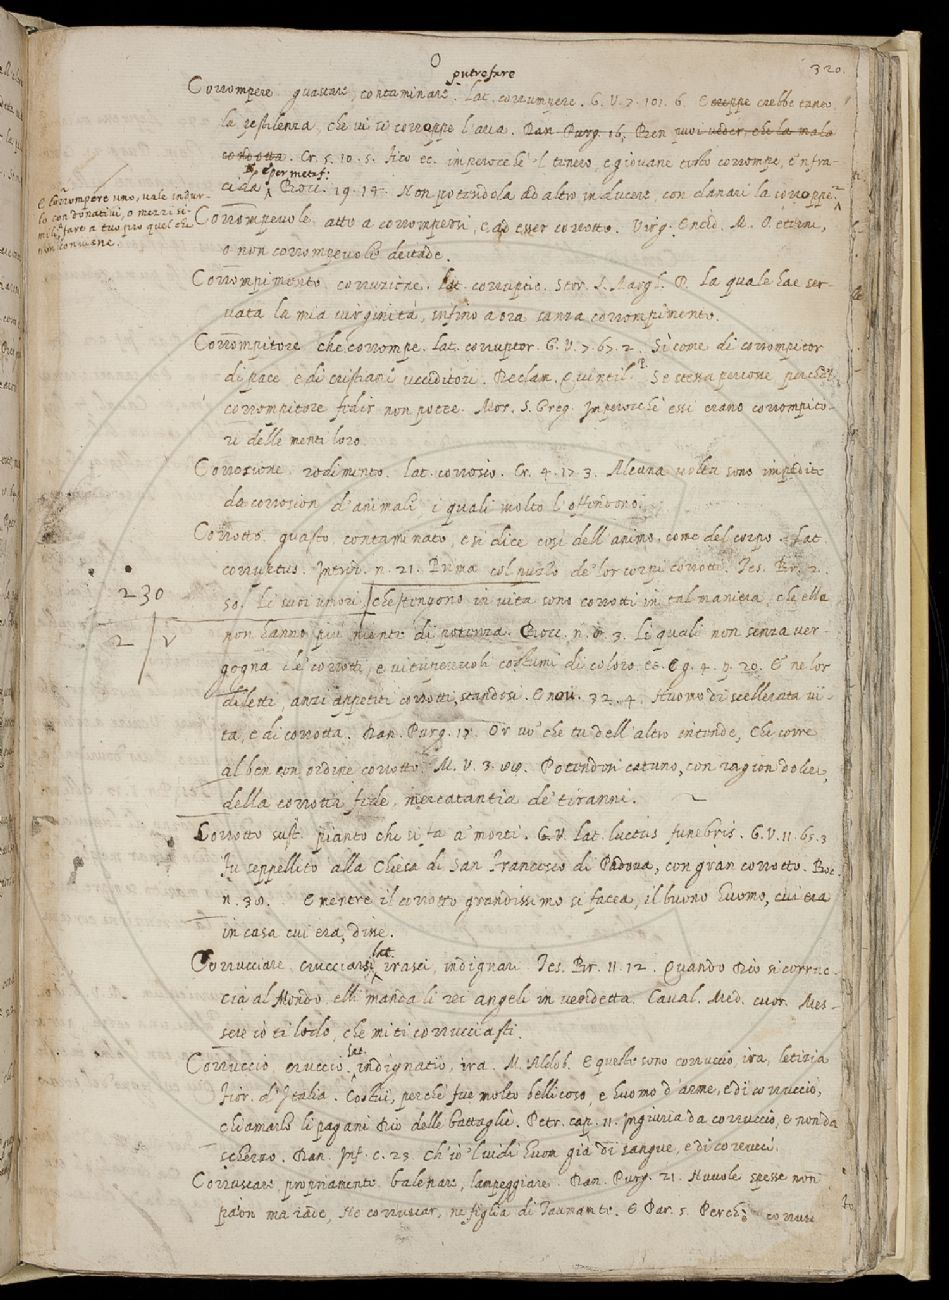 O
320.
putrefare
Corrompere guastare, contaminare. Lat. corrumpere. G. V. 7. 101. 6. E crebbe tanto
la pestilenza, che vi si corroppe l'aria. Dan. Purg. 16. Ben puoi veder, che la mala
condotta. Cr. 5. 10. 5. fico ec. imperocchè 'l tenero, e giovane tosto corrompe, e infra-
cida. E per metaf: Bocc. 19. 14. Non potendola ad altro inducere, con danari la corroppe.
E corrompere uno, vale indur-
lo con donativi, o mezzi si-
mili, a fare a tuo pro quel che
non conviene.
Corrompevole. atto a corrompersi, e ad esser corrotto. Virg. Eneid. M. O eterni,
o non corrompevole deitade.
Corrompimento corruzione. Lat. corruptio. Stor. S. Margh. P. La quale hae ser-
vata la mia virginità, infino a ora sanza corrompimento.
Corrompitore che corrompe. Lat. corruptor. G. V. 7. 67. 2. Sì come di corrompitor
di pace e di cristiani ucciditori. Declam. Quintil. P. Se stessa percosse perchè 'l
corrompitore fedir non potea. Mor. S. Greg. Imperocchè essi erano corrompito-
ri delle menti loro.
Corrosione. rodimento. Lat. corrosio. Cr. 4. 17. 3. Alcuna volta sono impedite
da corrosion d'animali i quali molto l'offendono.
Corrotto. guasto, contaminato, e si dice così dell'animo, come del corpo. Lat.
corruptus. Introd. n. 21. Prima col puzzo de' lor corpi corrotti. Tes. Br. 2.
230
2
50. Li suoi umori, che stengono in vita sono corrotti in tal maniera, che elle
non hanno più niente di potenza. Bocc. n. 8. 3. Li quali non senza ver-
gogna de' corrotti, e vituperevoli costumi di coloro ec. E g. 4. p. 20. E ne' lor
diletti, anzi appetiti corrotti, standosi. E nov. 32. 4. Huomo di scellerata vi-
ta, e di corrotta. Dan. Purg. 17. Or vo' che tu dell'altro intende, Che corre
al ben con ordine corrotto. M. V. 3. 48. Potendosi catuno, con ragion dolersi,
della corrotta fede, mercatantia de' tiranni.
Corrotto sust. pianto che si fa a' morti. G. V. Lat. luctus funebris. G. V. 11. 65. 3
Fu seppellito alla Chiesa di San Francesco di Padova, con gran corrotto. Boc.
n. 38. E mentre il corrotto grandissimo si facea, il buono huomo, cui era
in casa cui era, disse.
Corrucciare, crucciarsi, Lat. irasci, indignari Tes. Br. 11. 12. Quando Dio si corruc-
cia al Mondo, elli manda li rei angeli in vendetta. Caval. Med. cuor. Mes-
sere io ti lodo, che mi ti corrucciasti.
Corruccio, cruccio. Lat. indignatio, ira. M. Aldob. E queste sono corruccio, ira, letizia
Fior. d'Italia. Costui, perchè fue molto bellicoso, e huomo d'arme, e di corruccio,
chiamarlo li pagani Dio delle battaglie. Petr. cap. 11. Ingiuria da corruccio, e non da
scherzo. Dan. Inf. c. 24. Ch'io 'l vidi huom già di sangue, e di corrucci.
Corruscare, propriamente balenare, lampeggiare. Dan. Purg. 21. Nuvole spesse non
paion ma rade, Ne corruscar, ne figlia di Taumante. E Par. 5. Perch'è corrusc